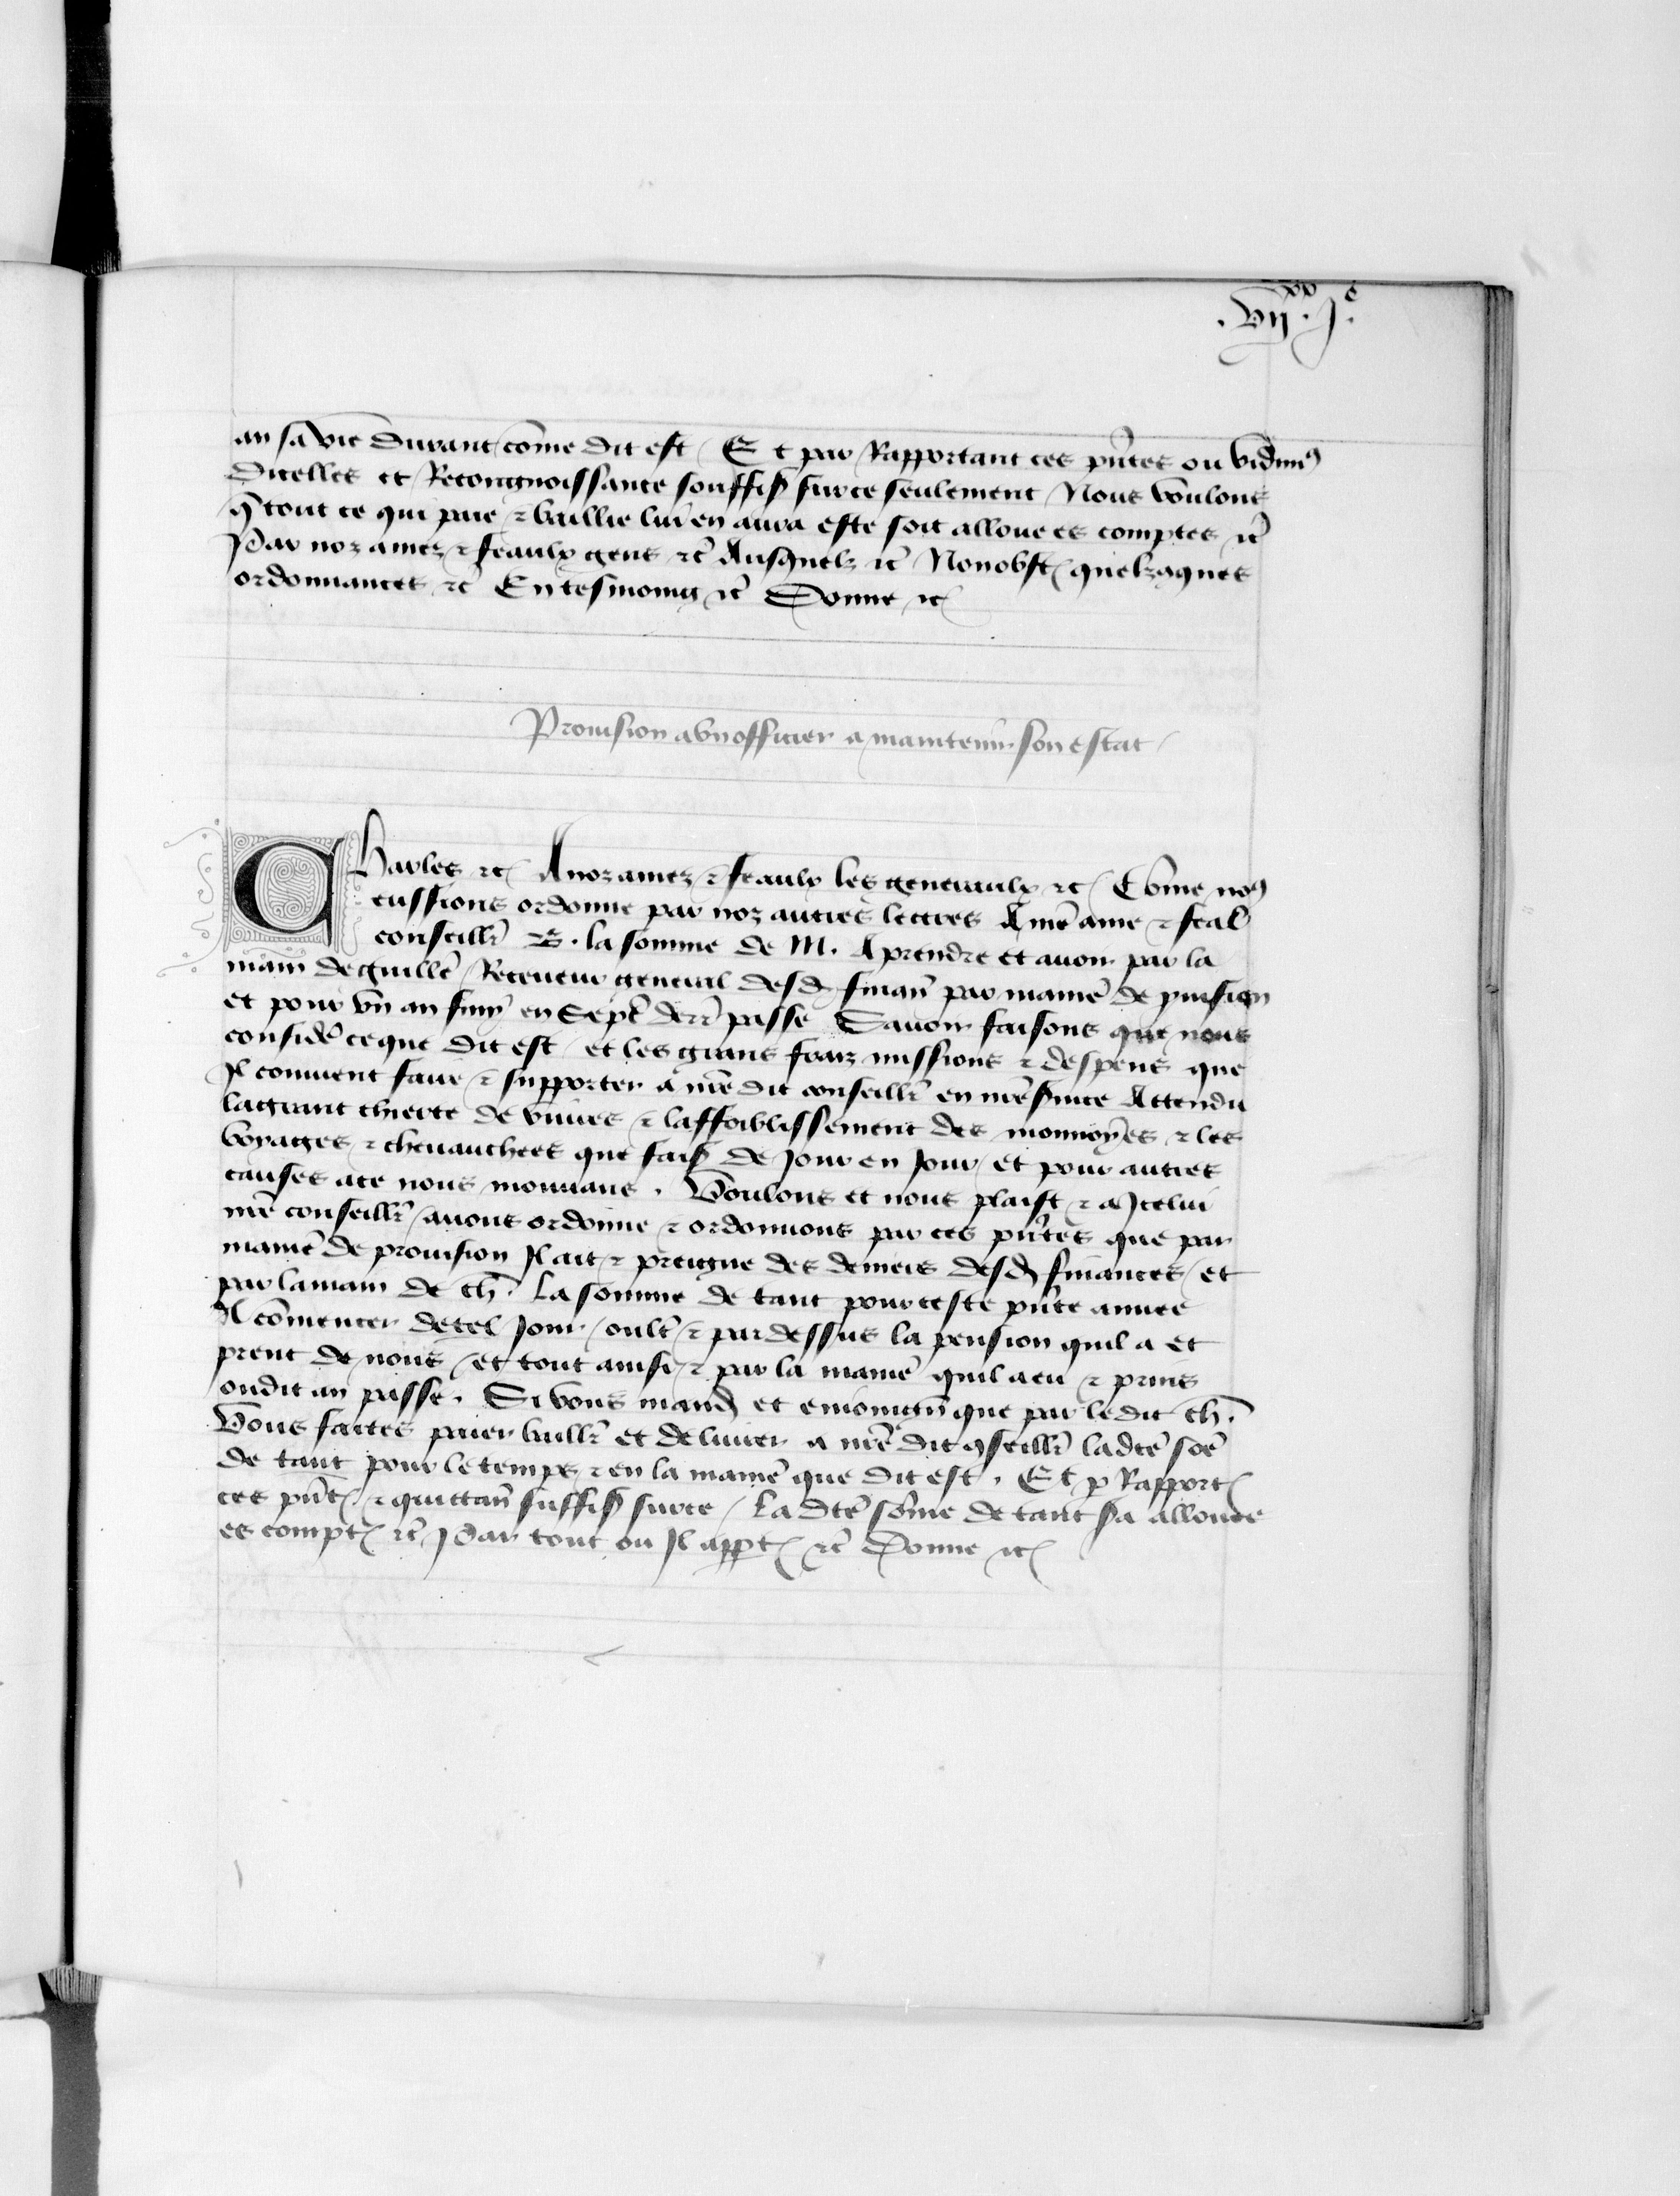 .vii.xx j.e
an sa vie durant come dit est Et par Rapportant ces pñtes ou vidimꝰ
dicelles et Recongnoissance souffis surce seulement Nous voulons
q̃ tout ce qui paie ⁊ baillie lui en aura este soit alloue es comptes ⁊c̃
Par noz amez ⁊ feaulx gens ⁊c̃ Ausquelz ⁊c̃ Nonobst quelzqques
ordonnances ⁊c̃ En tesmoing ⁊c̃ Donne ⁊c
Prouision a vn officier a maintenir son estat
Charles ⁊c A noz amez ⁊ feaulx les generaulx ⁊c Cõme noꝰ
eussions ordonne par noz autres lectres A nr̃e ame ⁊ feal
conseillr̃ B. la somme de M. A prendre et auoir par la
main de guillẽ Receueur general desd finan̄ par manieȓ de prouision
et pour vn an finy en Sept̃ derr̃ passe Sauoir faisons que nous
consider̃ ce que dit est et les grans fraiz missions ⁊ despens que
Il conuient faire ⁊ supporter a nr̃e dit conseillr̃ en nr̃e seruice Attendu
la grant chierte de viures ⁊ laffoiblissement des monnoyes ⁊ les
voyages ⁊ cheuauchees que fais de Jour en Jour et pour autres
causes a ce nous mouuans . Voulons et nous plaist ⁊ a Icelui
nr̃e conseillr̃ auons ordonne ⁊ ordonnons par ces pñtes que par
manier̃ de prouision Il ait ⁊ preigne des deniers desd finances et
par la main de ch. La somme de tant pour ceste pñte annee
A cõmencer de tel Jour oult̃ ⁊ par dessus la pension quil a et
prent de nous et tout ainsi ⁊ par la manier̃ quil a eu ⁊ prins
oudit an passe . Si vous mand et enioingn̄ que par ledit ch.
Vous faictes paier baillr̃ et deliurer a nr̃e dit ꝯseillr̃ ladcte soẽ
de tant pour le temps ⁊ en la manier̃ que dit est . Et p Rapport
ces pñt ⁊ quittan̄ suffis surce La dcte sõme de tant sa allouee
es compt ⁊c̃ Par tout ou Il appt ⁊c̃ Donne ⁊c